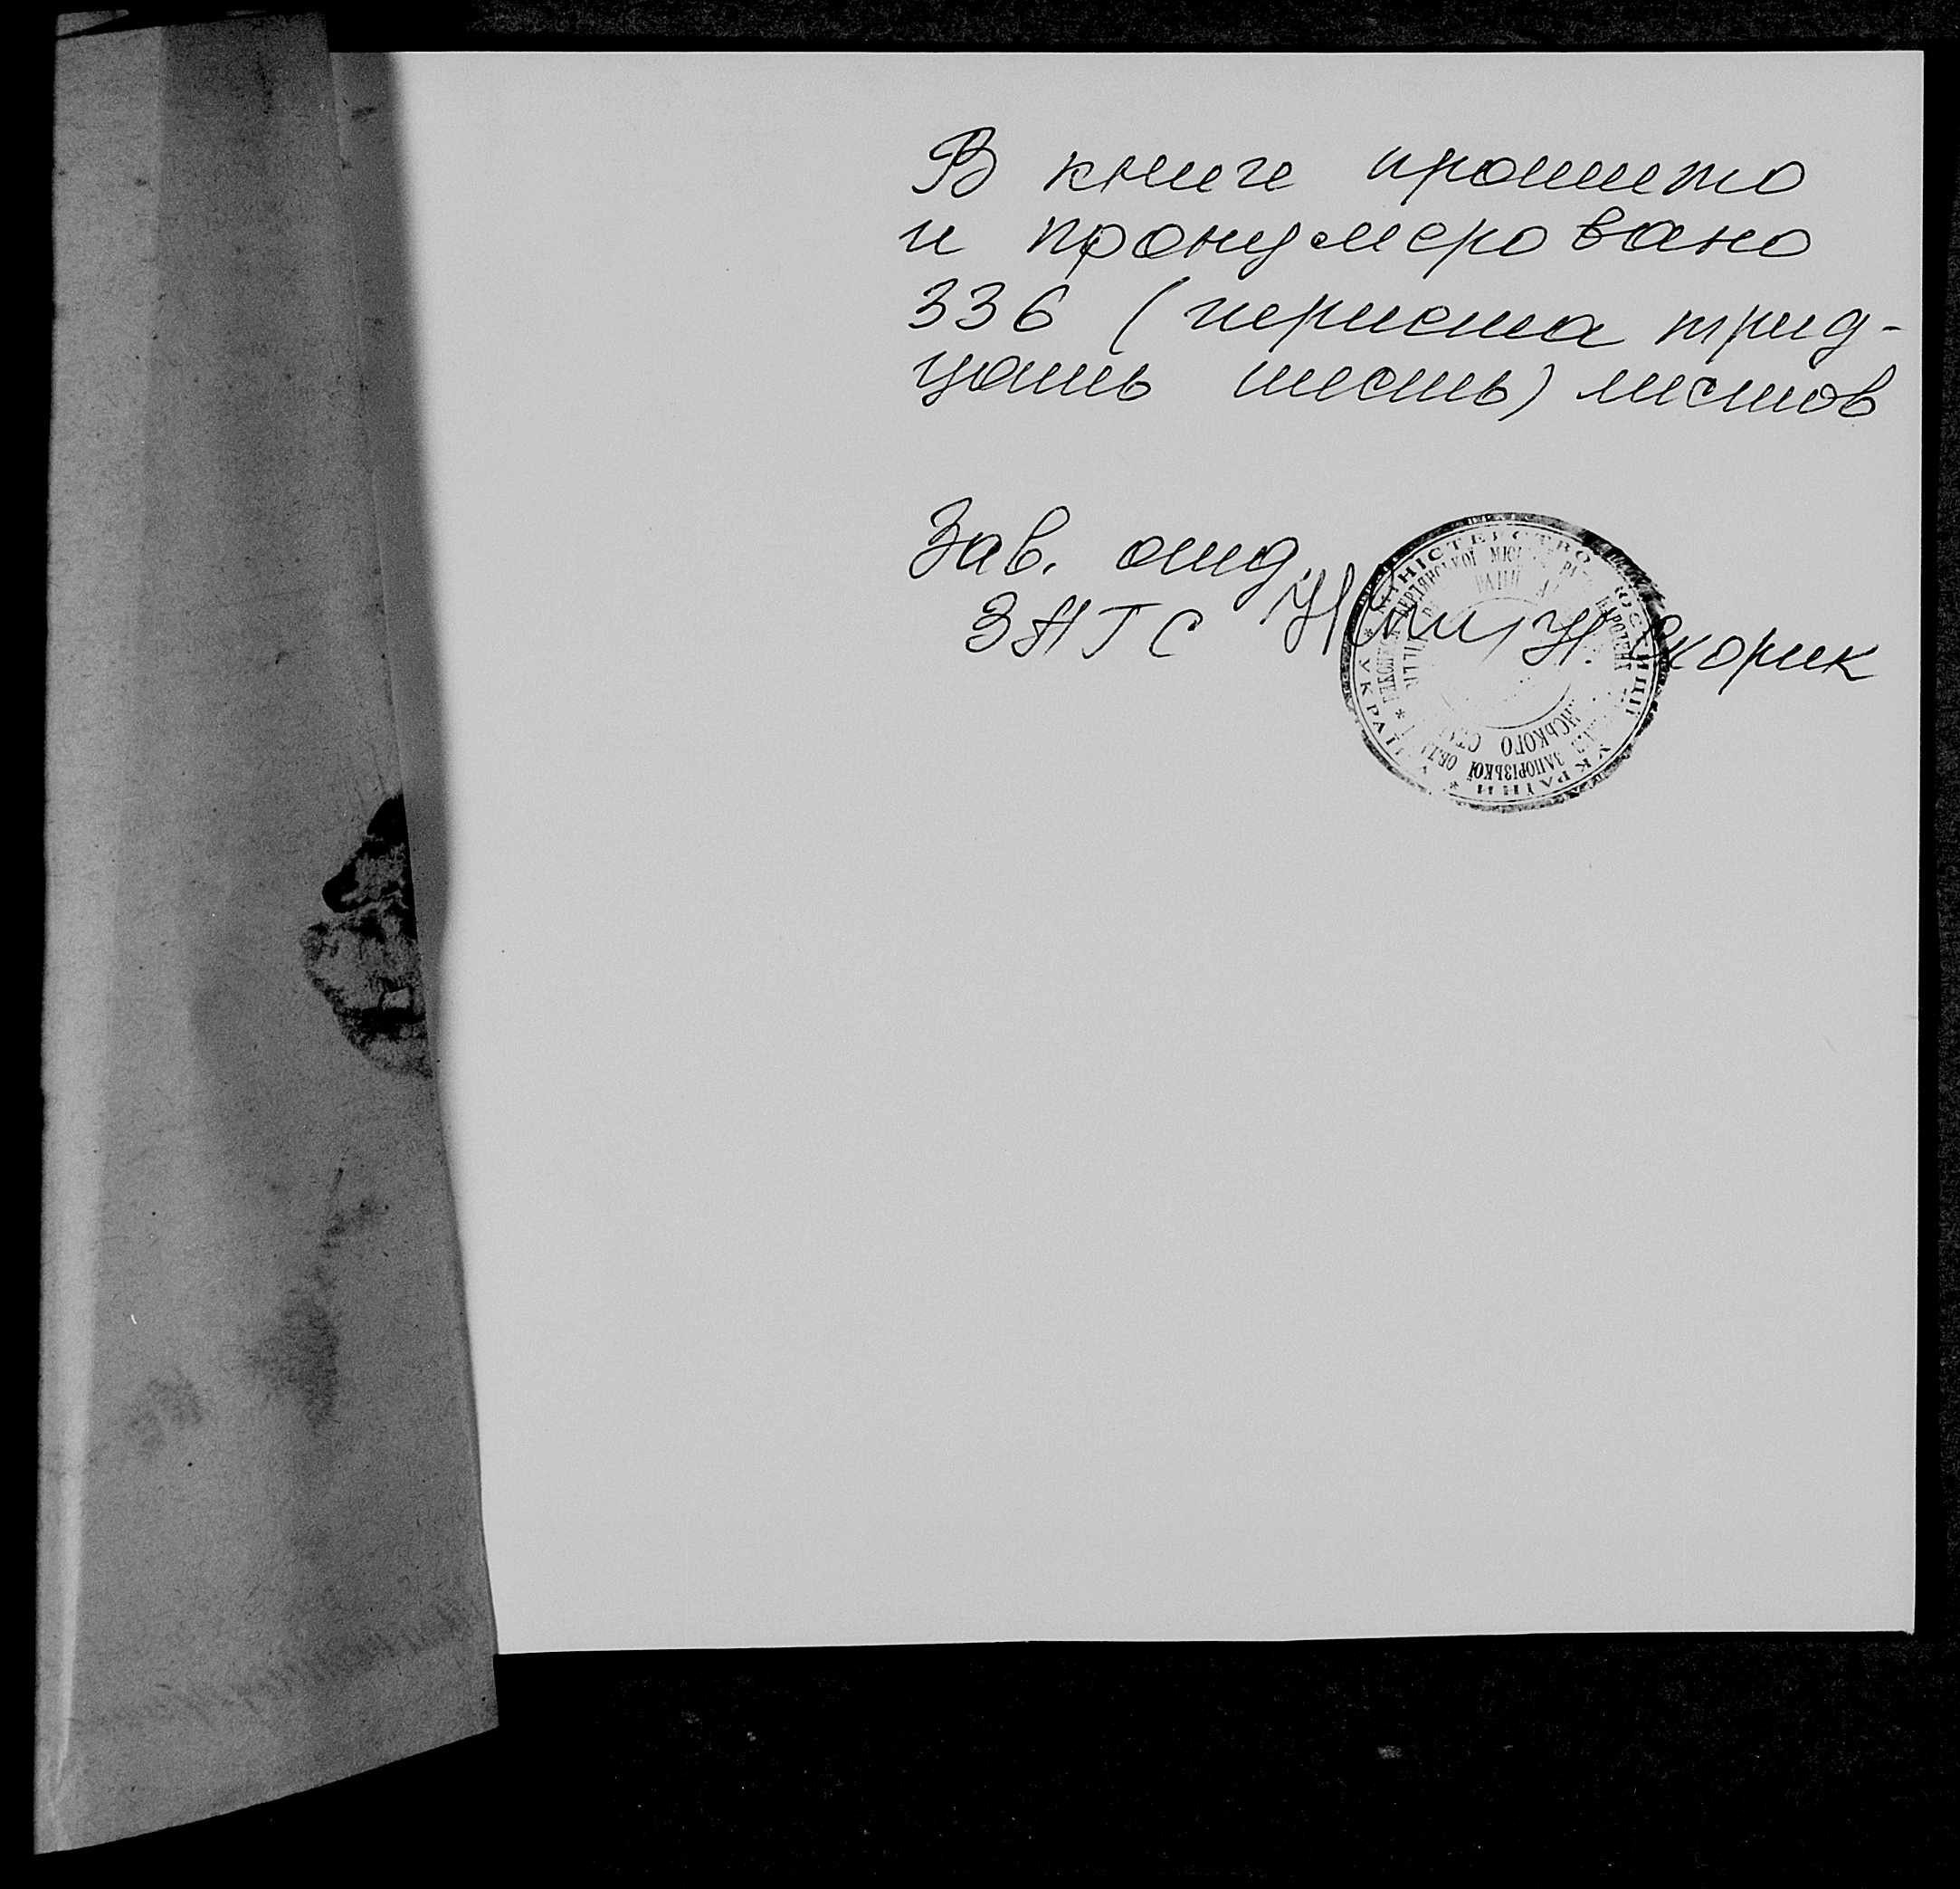 В книге прошито
и пронумеровано
336 (териста трид-
цать шесть) листов
Зав. отд.
ЗАГС Н. Скорик
МІНІСТЕРСТВО ЮСТИЦІЇ УКРАЇНИ * УКРАЇНА *
ЗАПОРІЗЬКОЇ